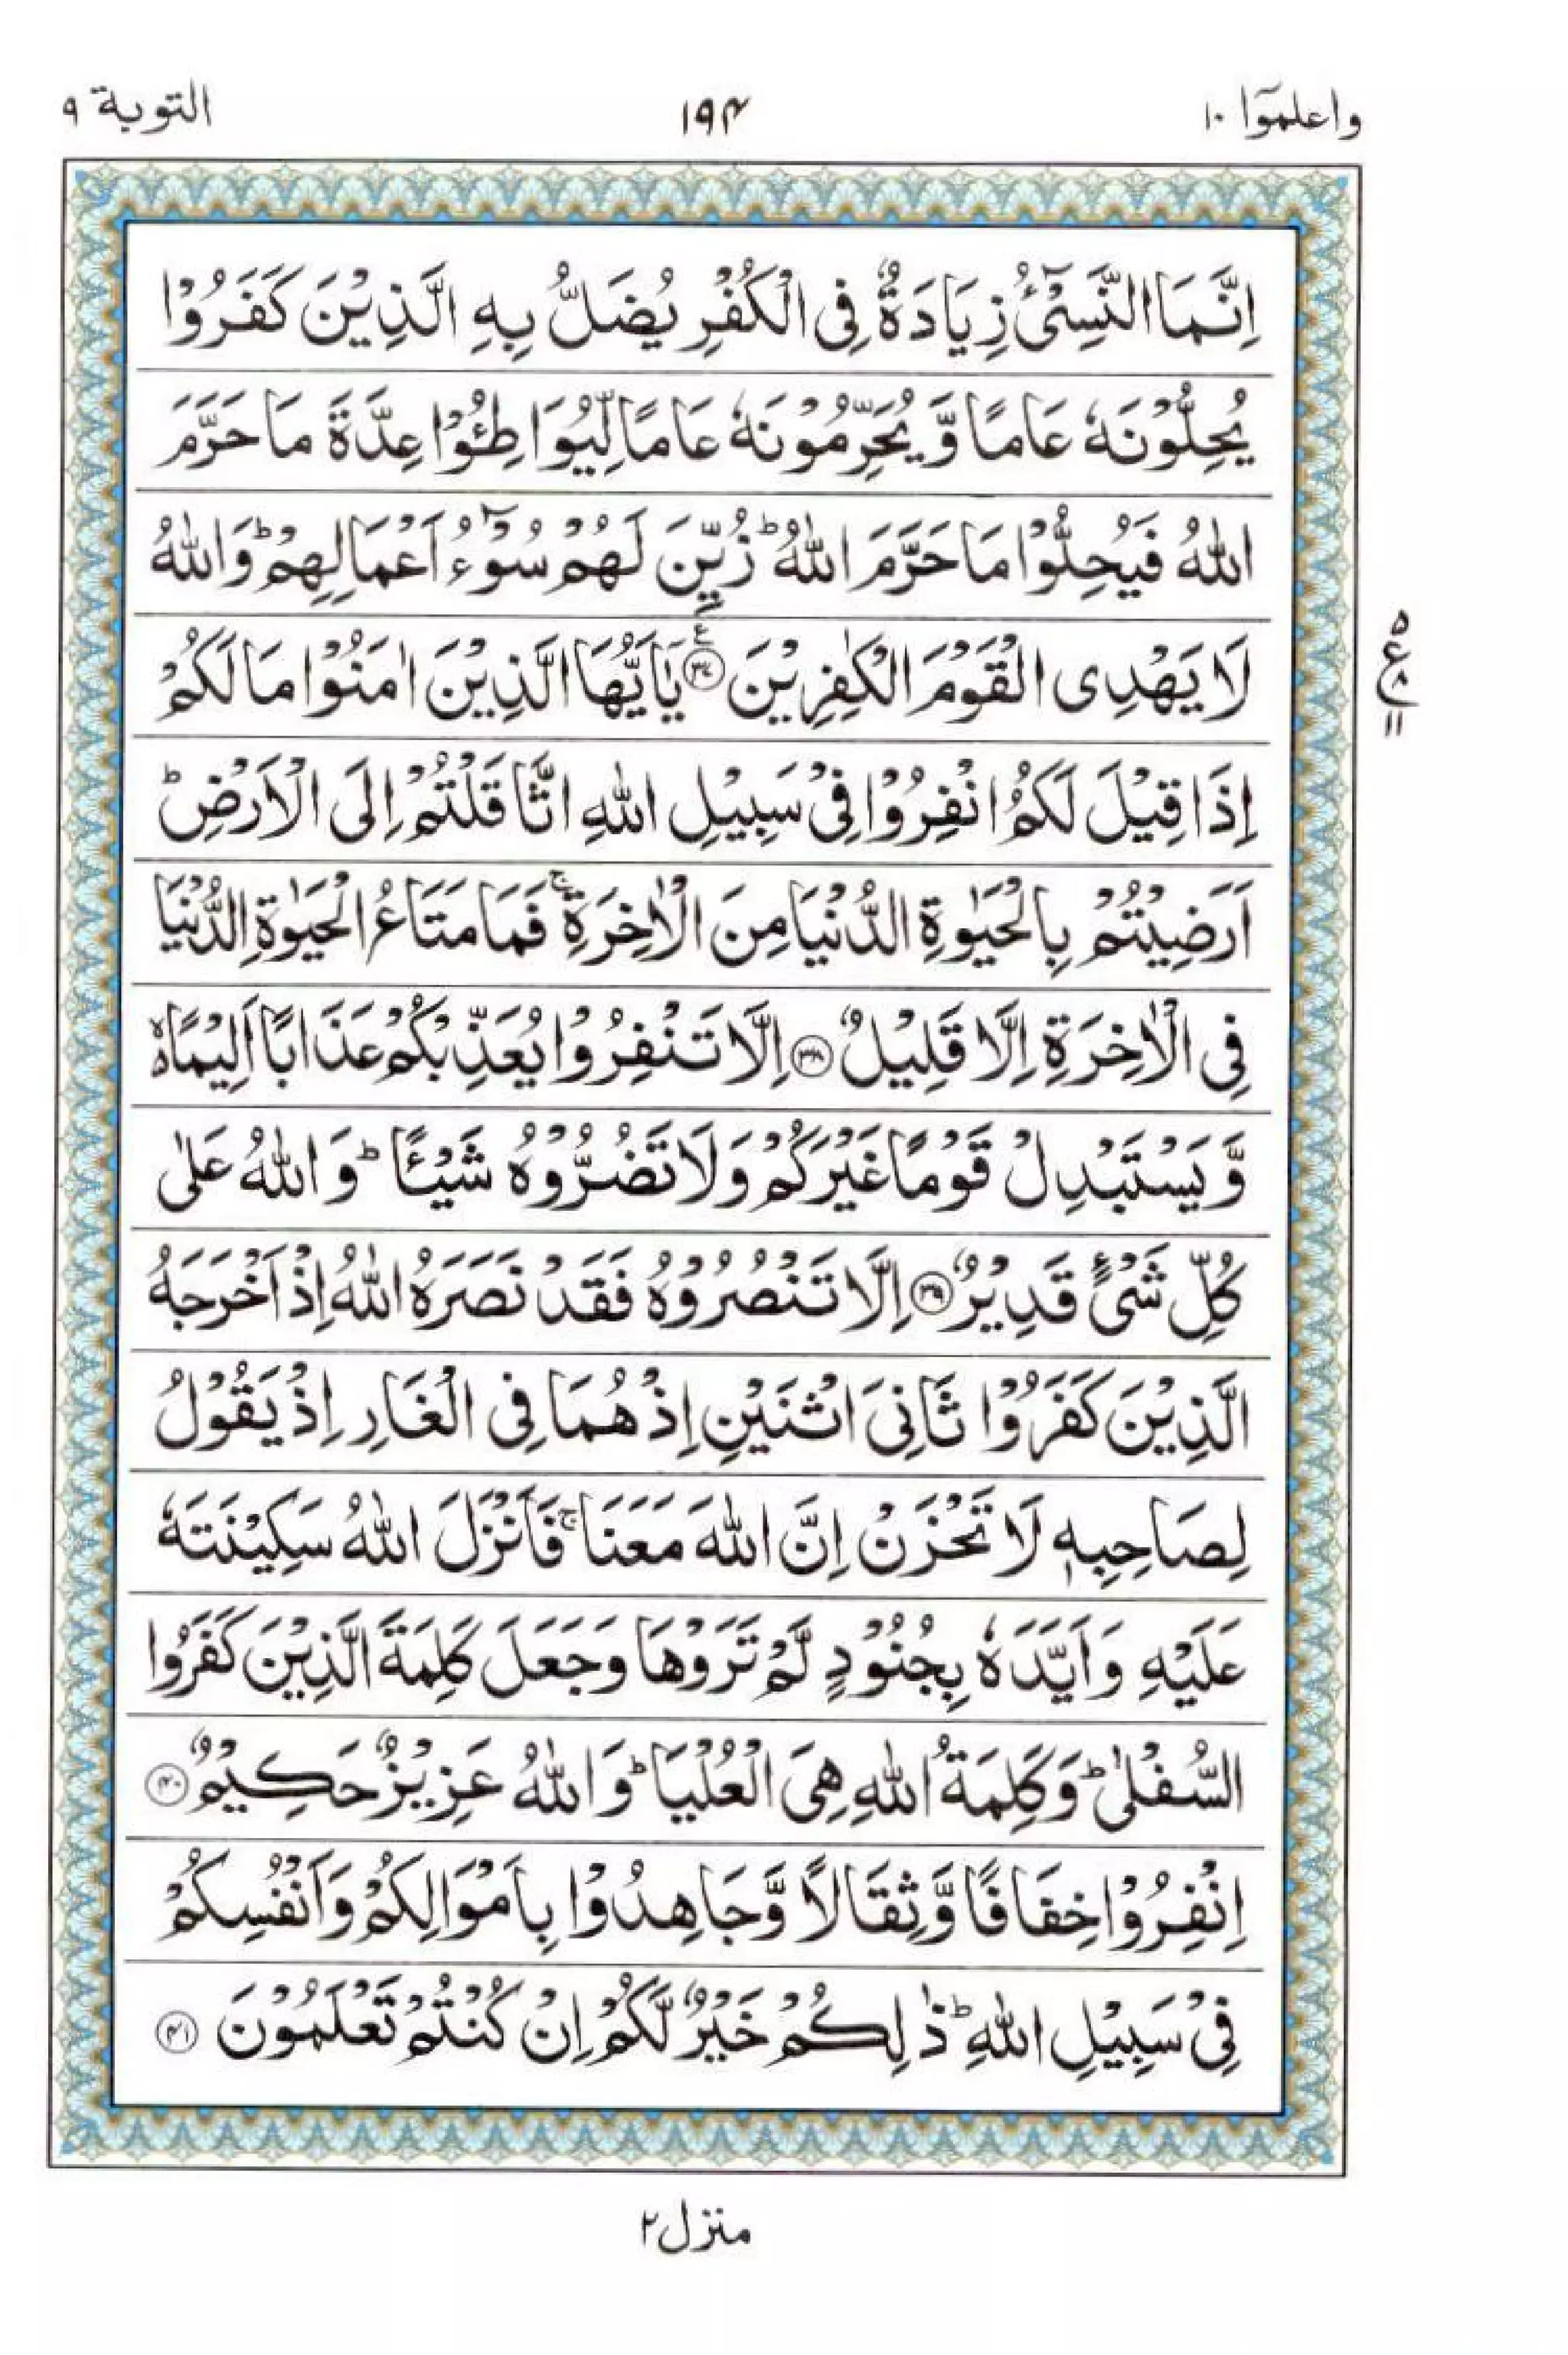 واعلموۤا ١٠
١٩۴
التوبة ٩
اِنَّمَا النَّسِیْٓءُ زِیَادَةٌ فِی الْكُفْرِ یُضَلُّ بِهِ الَّذِیْنَ كَفَرُوْا
یُحِلُّوْنَهٗ عَامًا وَّیُحَرِّمُوْنَهٗ عَامًا لِّیُوَاطِـُٔوْا عِدَّةَ مَا حَرَّمَ
اللّٰهُ فَیُحِلُّوْا مَا حَرَّمَ اللّٰهُ ؕ زُیِّنَ لَهُمْ سُوْٓءُ اَعْمَالِهِمْ ؕ وَاللّٰهُ
لَا یَهْدِی الْقَوْمَ الْكٰفِرِیْنَ ۟۠ ﴿٣٧﴾ یٰۤاَیُّهَا الَّذِیْنَ اٰمَنُوْا مَا لَكُمْ
٥
ع
١١
اِذَا قِیْلَ لَكُمُ انْفِرُوْا فِیْ سَبِیْلِ اللّٰهِ اثَّاقَلْتُمْ اِلَی الْاَرْضِ ؕ
اَرَضِیْتُمْ بِالْحَیٰوةِ الدُّنْیَا مِنَ الْاٰخِرَةِ ۚ فَمَا مَتَاعُ الْحَیٰوةِ الدُّنْیَا
فِی الْاٰخِرَةِ اِلَّا قَلِیْلٌ ﴿٣٨﴾ اِلَّا تَنْفِرُوْا یُعَذِّبْكُمْ عَذَابًا اَلِیْمًا ۙ
وَّیَسْتَبْدِلْ قَوْمًا غَیْرَكُمْ وَلَا تَضُرُّوْهُ شَیْـًٔا ؕ وَاللّٰهُ عَلٰی
كُلِّ شَیْءٍ قَدِیْرٌ ﴿٣٩﴾ اِلَّا تَنْصُرُوْهُ فَقَدْ نَصَرَهُ اللّٰهُ اِذْ اَخْرَجَهُ
الَّذِیْنَ كَفَرُوْا ثَانِیَ اثْنَیْنِ اِذْ هُمَا فِی الْغَارِ اِذْ یَقُوْلُ
لِصَاحِبِهٖ لَا تَحْزَنْ اِنَّ اللّٰهَ مَعَنَا ۚ فَاَنْزَلَ اللّٰهُ سَكِیْنَتَهٗ
عَلَیْهِ وَاَیَّدَهٗ بِجُنُوْدٍ لَّمْ تَرَوْهَا وَجَعَلَ كَلِمَةَ الَّذِیْنَ كَفَرُوا
السُّفْلٰی ؕ وَكَلِمَةُ اللّٰهِ هِیَ الْعُلْیَا ؕ وَاللّٰهُ عَزِیْزٌ حَكِیْمٌ ﴿٤٠﴾
اِنْفِرُوْا خِفَافًا وَّثِقَالًا وَّجَاهِدُوْا بِاَمْوَالِكُمْ وَاَنْفُسِكُمْ
فِیْ سَبِیْلِ اللّٰهِ ؕ ذٰلِكُمْ خَیْرٌ لَّكُمْ اِنْ كُنْتُمْ تَعْلَمُوْنَ ﴿٤١﴾
منزل ٢